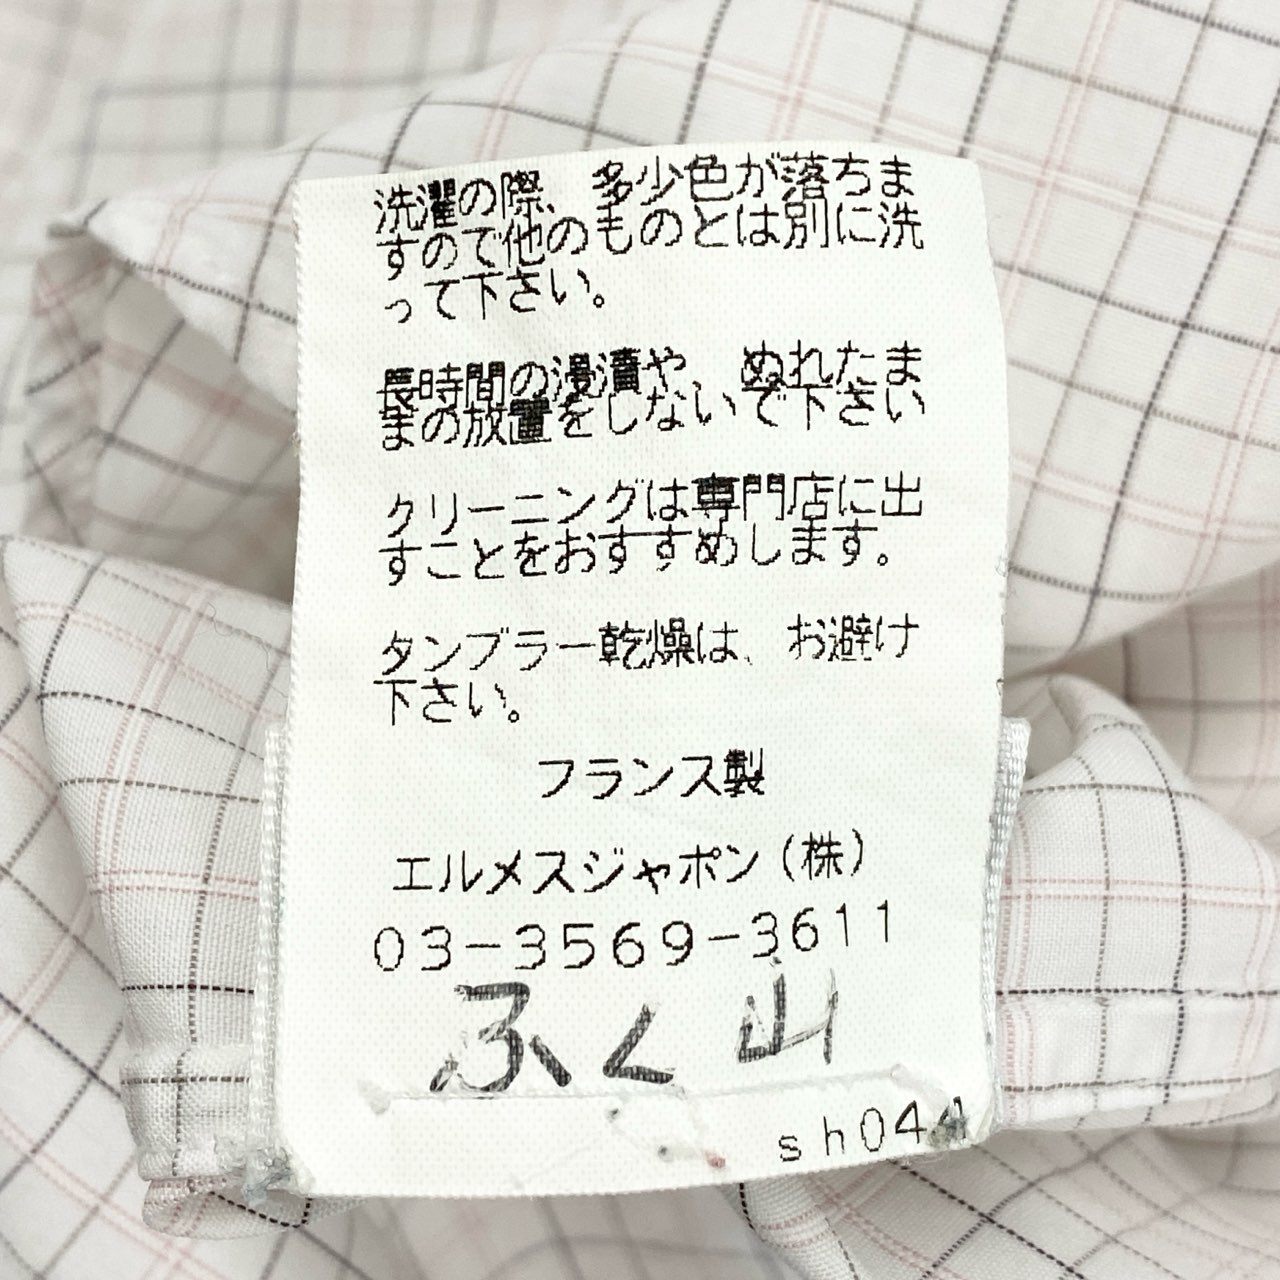 洗濯の際、多少色が落ちま
すので他のものとは別に洗
って下さい。
長時間の浸漬や、ぬれたま
まの放置をしないで下さい
クリーニングは専門店に出
すことをおすすめします。
タンブラー乾燥は、お避け
下さい。
フランス製
エルメスジャポン(株)
03-3569-3611
ふく山